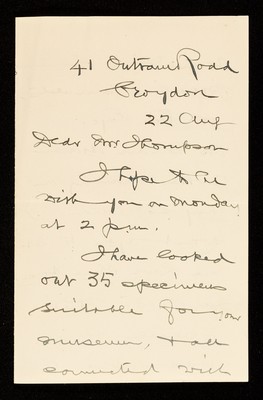 41 Outram Road
Croydon
22 Aug
Dear Mr Thompson
I hope to be
with you on Monday
at 2 p.m.
I have looked
out 35 specimens
suitable for your
museum, & all
connected with